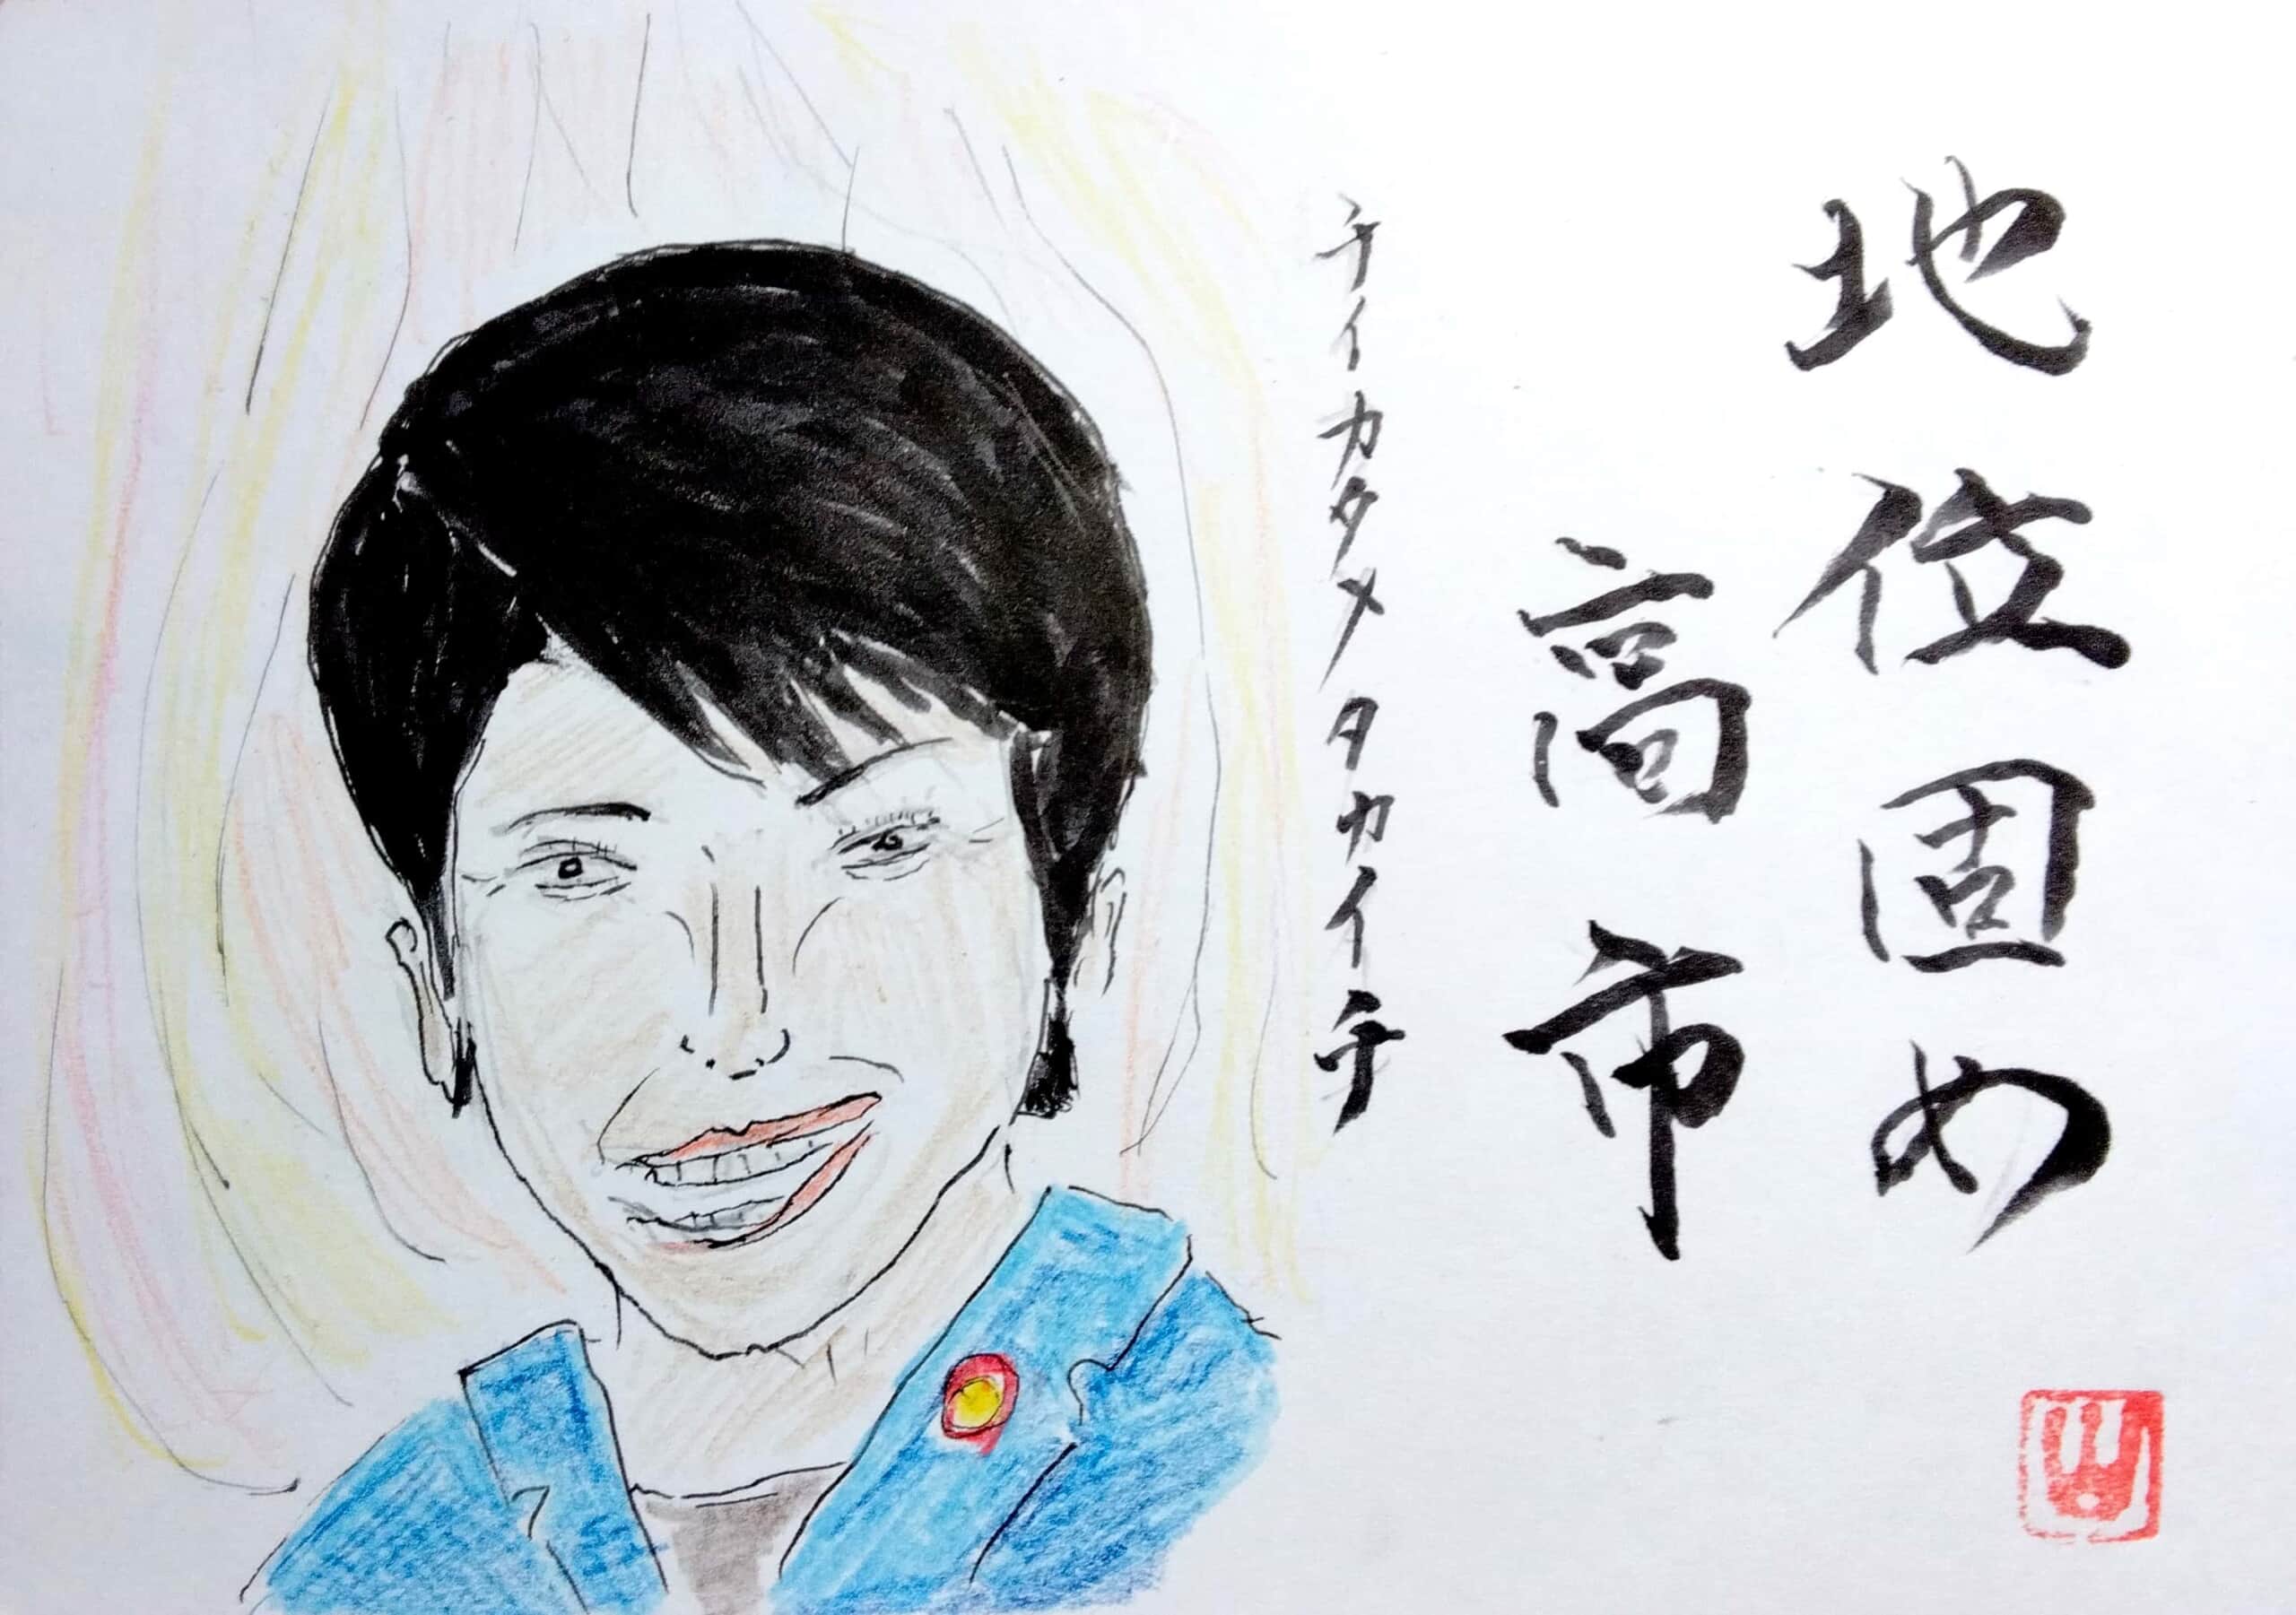 地位固め
高市
チイカタメタカイチ